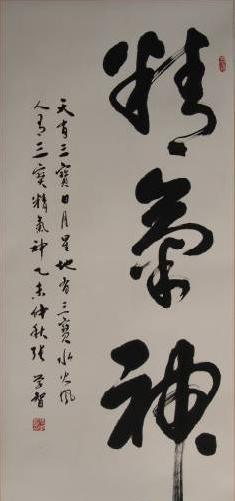 精氣神
天有三寶日月星地有三寶水火風
人有三寶精氣神乙未仲秋張學智